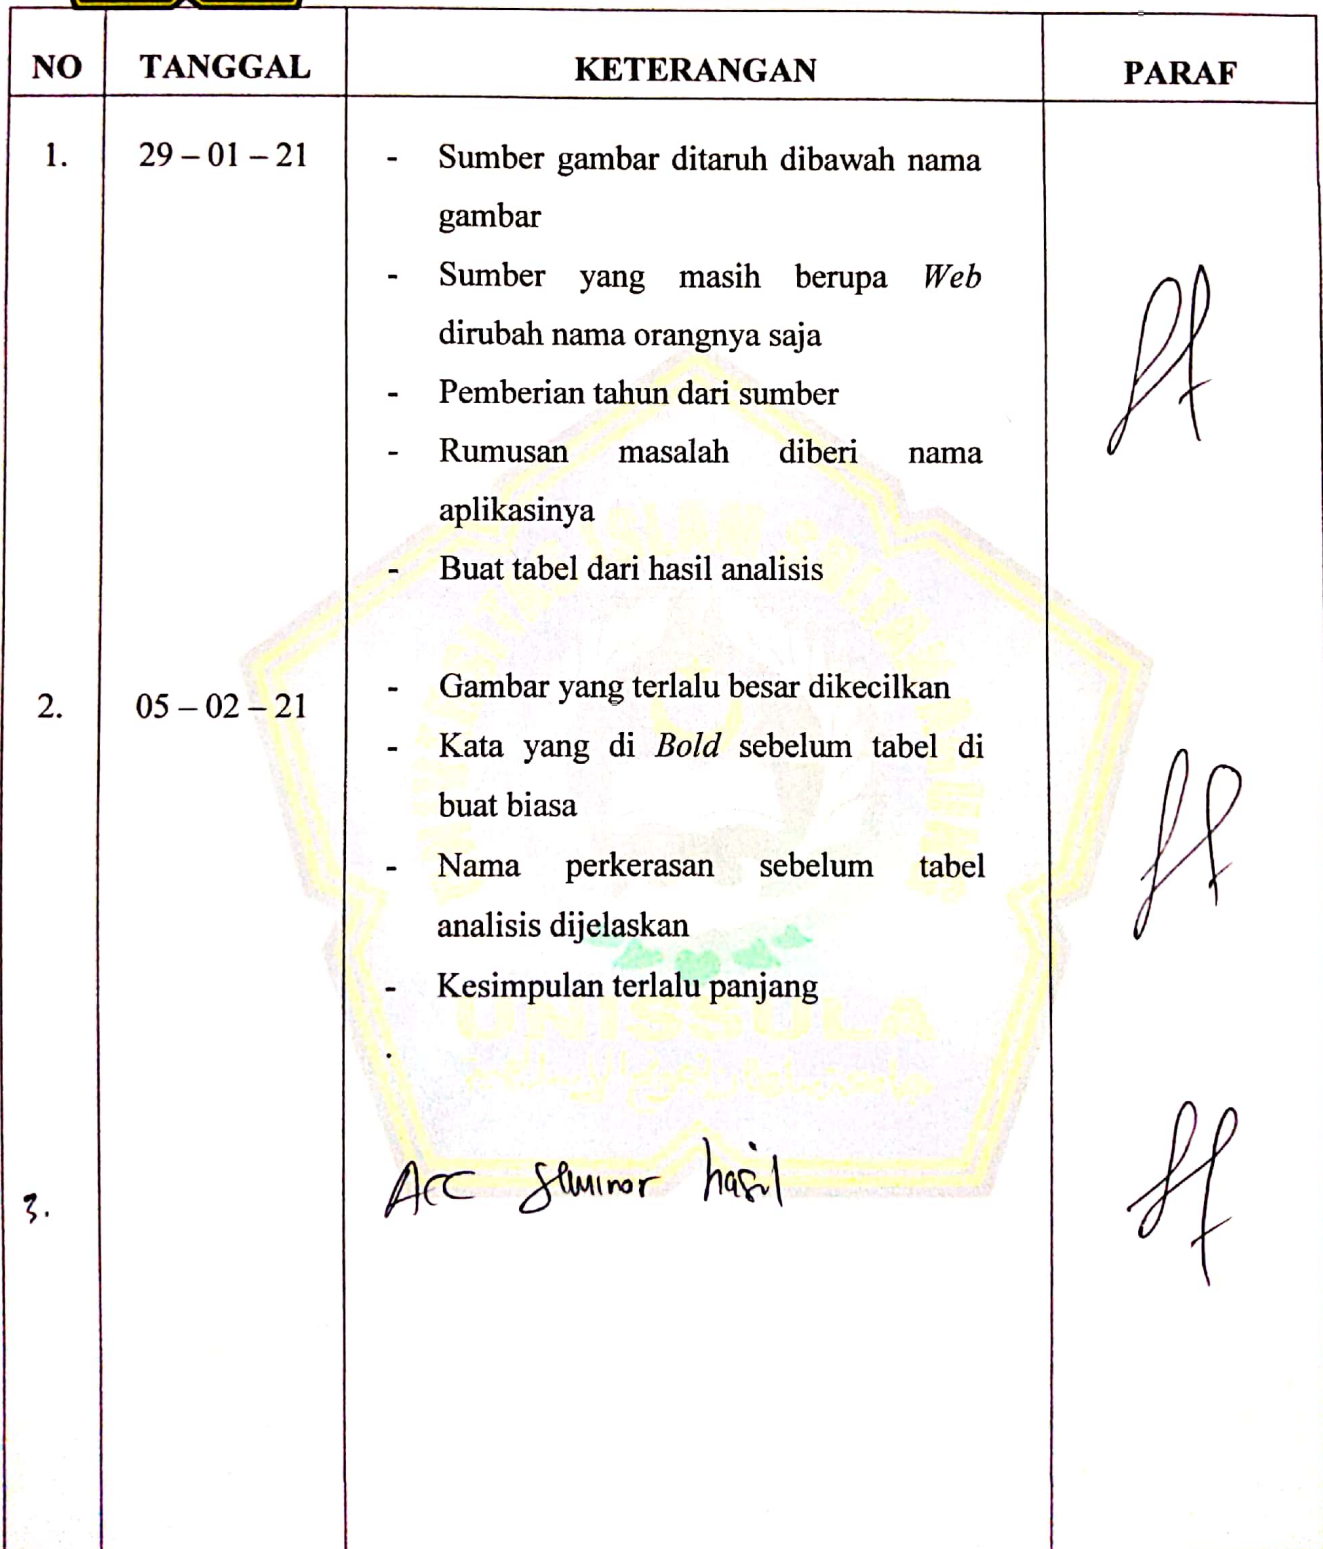 NO TANGGAL KETERANGAN PARAF
1. 29 – 01 – 21 - Sumber gambar ditaruh dibawah nama
gambar
- Sumber yang masih berupa Web
dirubah nama orangnya saja
- Pemberian tahun dari sumber
- Rumusan masalah diberi nama
aplikasinya
- Buat tabel dari hasil analisis
2. 05 – 02 – 21 - Gambar yang terlalu besar dikecilkan
- Kata yang di Bold sebelum tabel di
buat biasa
- Nama perkerasan sebelum tabel
analisis dijelaskan
- Kesimpulan terlalu panjang
.
3. ACC seminar hasil
UNISSULA